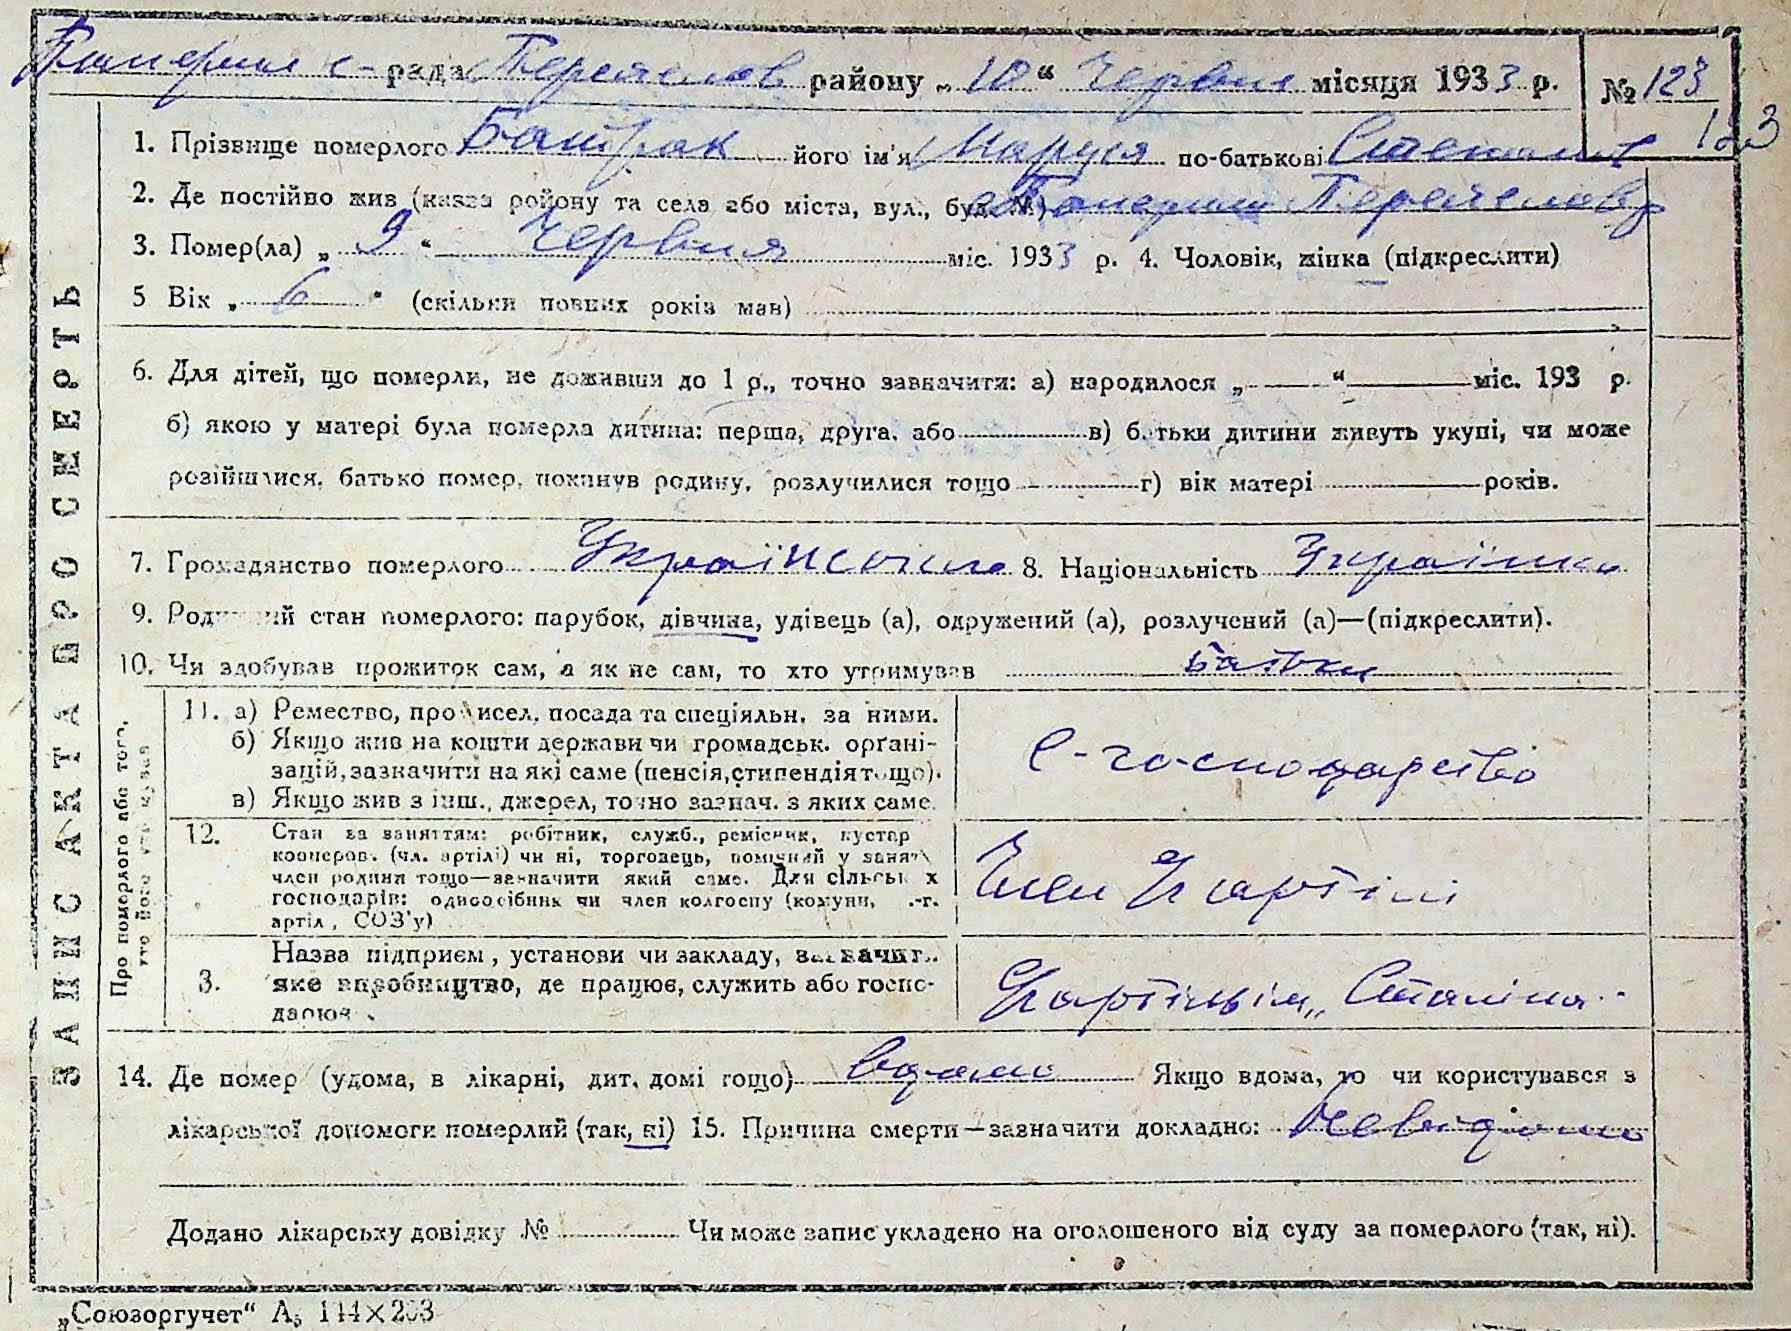 с-рада Переяслов району „10“ Червня місяця 1933 р. № 123
123
1. Прізвище померлого Батрак його ім'я Маруся по-батькові Степанов
2. Де постійно жив (назва району та села або міста, вул., буд. №) Переяслов
3. Помер(ла) „9“ Червня міс. 1933 р. 4. Чоловік, жінка (підкреслити)
5 Вік „6“ (скільки повних років мав)
6. Для дітей, що померли, не доживши до 1 р., точно зазначити: а) народилося „—“ — міс. 193 р.
б) якою у матері була померла дитина: перша, друга, або — в) батьки дитини живуть укупі, чи може
розійшлися, батько помер, покинув родину, розлучилися тощо — г) вік матері — років.
7. Громадянство померлого Українське 8. Національність Українка
9. Родинний стан померлого: парубок, дівчина, удівець (а), одружений (а), розлучений (а)—(підкреслити).
10. Чи здобував прожиток сам, а як не сам, то хто утримував батьки
ЗАПИС АКТА ПРО СМЕРТЬ
Про померлого або того, хто його утримував
11. а) Ремество, промисел, посада та спеціяльн. за ними.
б) Якщо жив на кошти держави чи громадськ. органі-
зацій, зазначити на які саме (пенсія, стипендія тощо).
в) Якщо жив з інш., джерел, точно зазнач. з яких саме.
с-господарство
12. Стан за заняттям: робітник, служб., ремісник, кустар
кооперов. (чл. артілі) чи ні, торговець, помічний у занят.
член родини тощо—зазначити який саме. Для сільськ х
господарів: одноосібник чи член колгоспу (комуни, с.-г.
артіл , СОЗ'у)
Член артілі
3. Назва підприєм , установи чи закладу, зазначит.
яке виробництво, де працює, служить або госпо-
дарює
„Сталіна
14. Де помер (удома, в лікарні, дит. домі тощо) вдома Якщо вдома, то чи користувався з
лікарської допомоги померлий (так, ні) 15. Причина смерти—зазначити докладно: Невідомо
Додано лікарську довідку № Чи може запис укладено на оголошеного від суду за померлого (так, ні).
„Союзоргучет“ А₅ 144×203